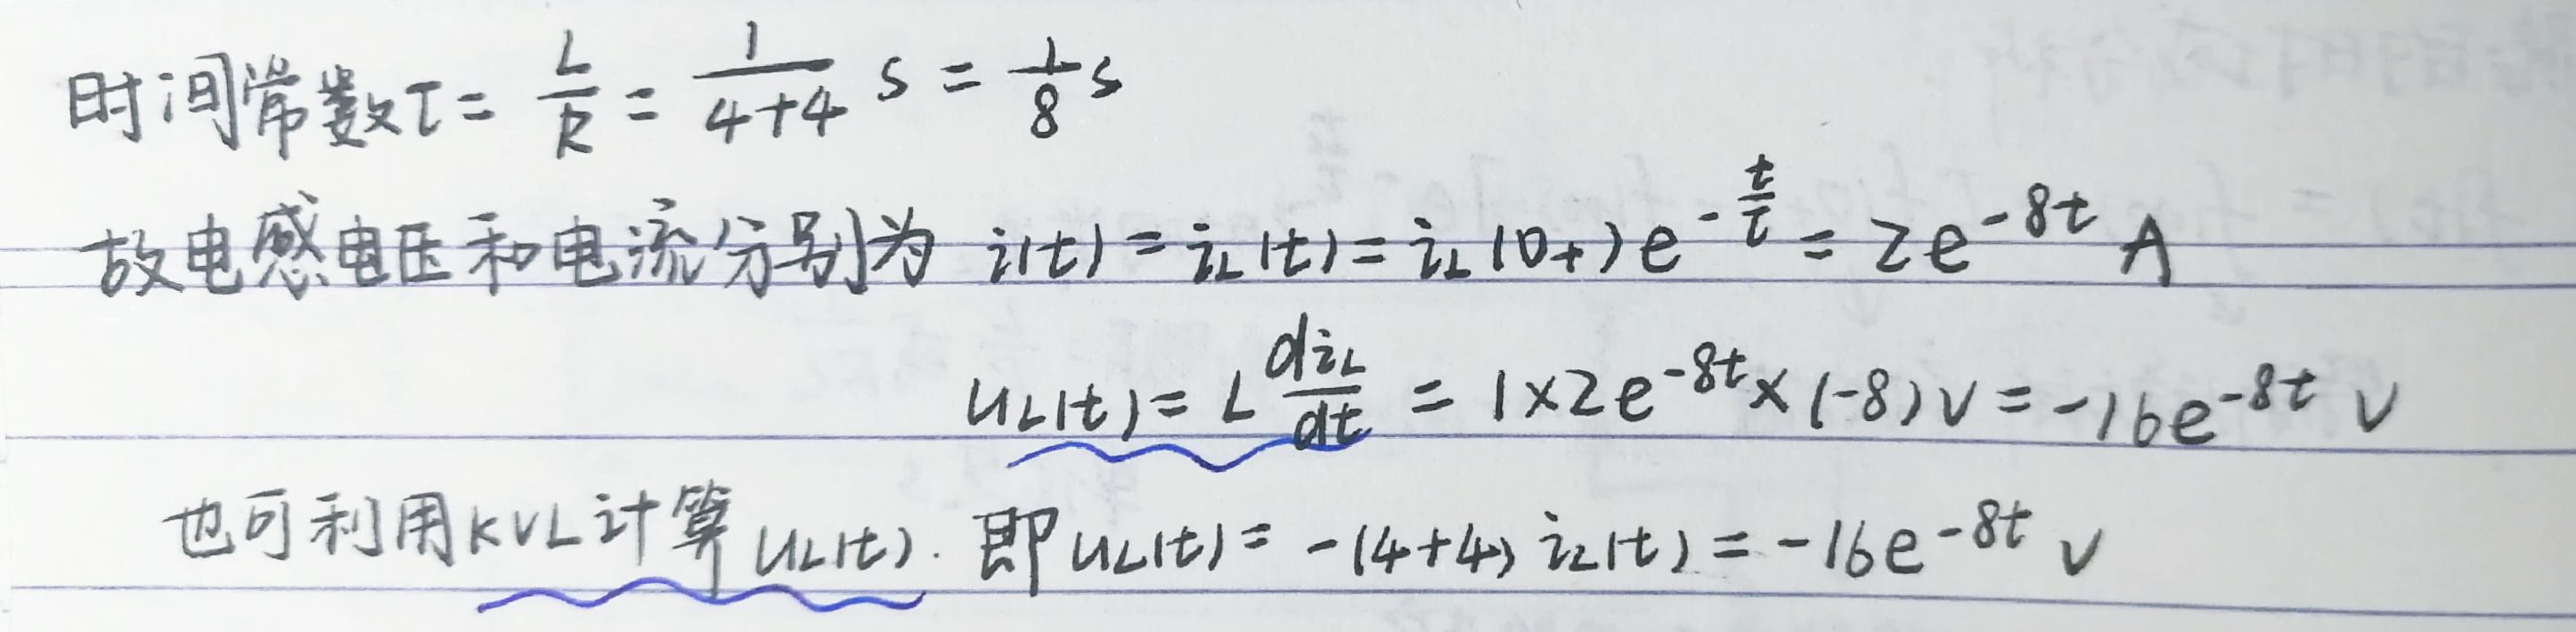 时间常数τ = L/R = 1/(4+4) s = 1/8 s
故电感电压和电流分别为 i(t) = i_L(t) = i_L(0+)e^{-t/τ} = 2e^{-8t} A
u_L(t) = L di_L/dt = 1×2e^{-8t}×(-8)V = -16e^{-8t} V
也可利用KVL计算u_L(t). 即u_L(t) = -(4+4) i_L(t) = -16e^{-8t} V